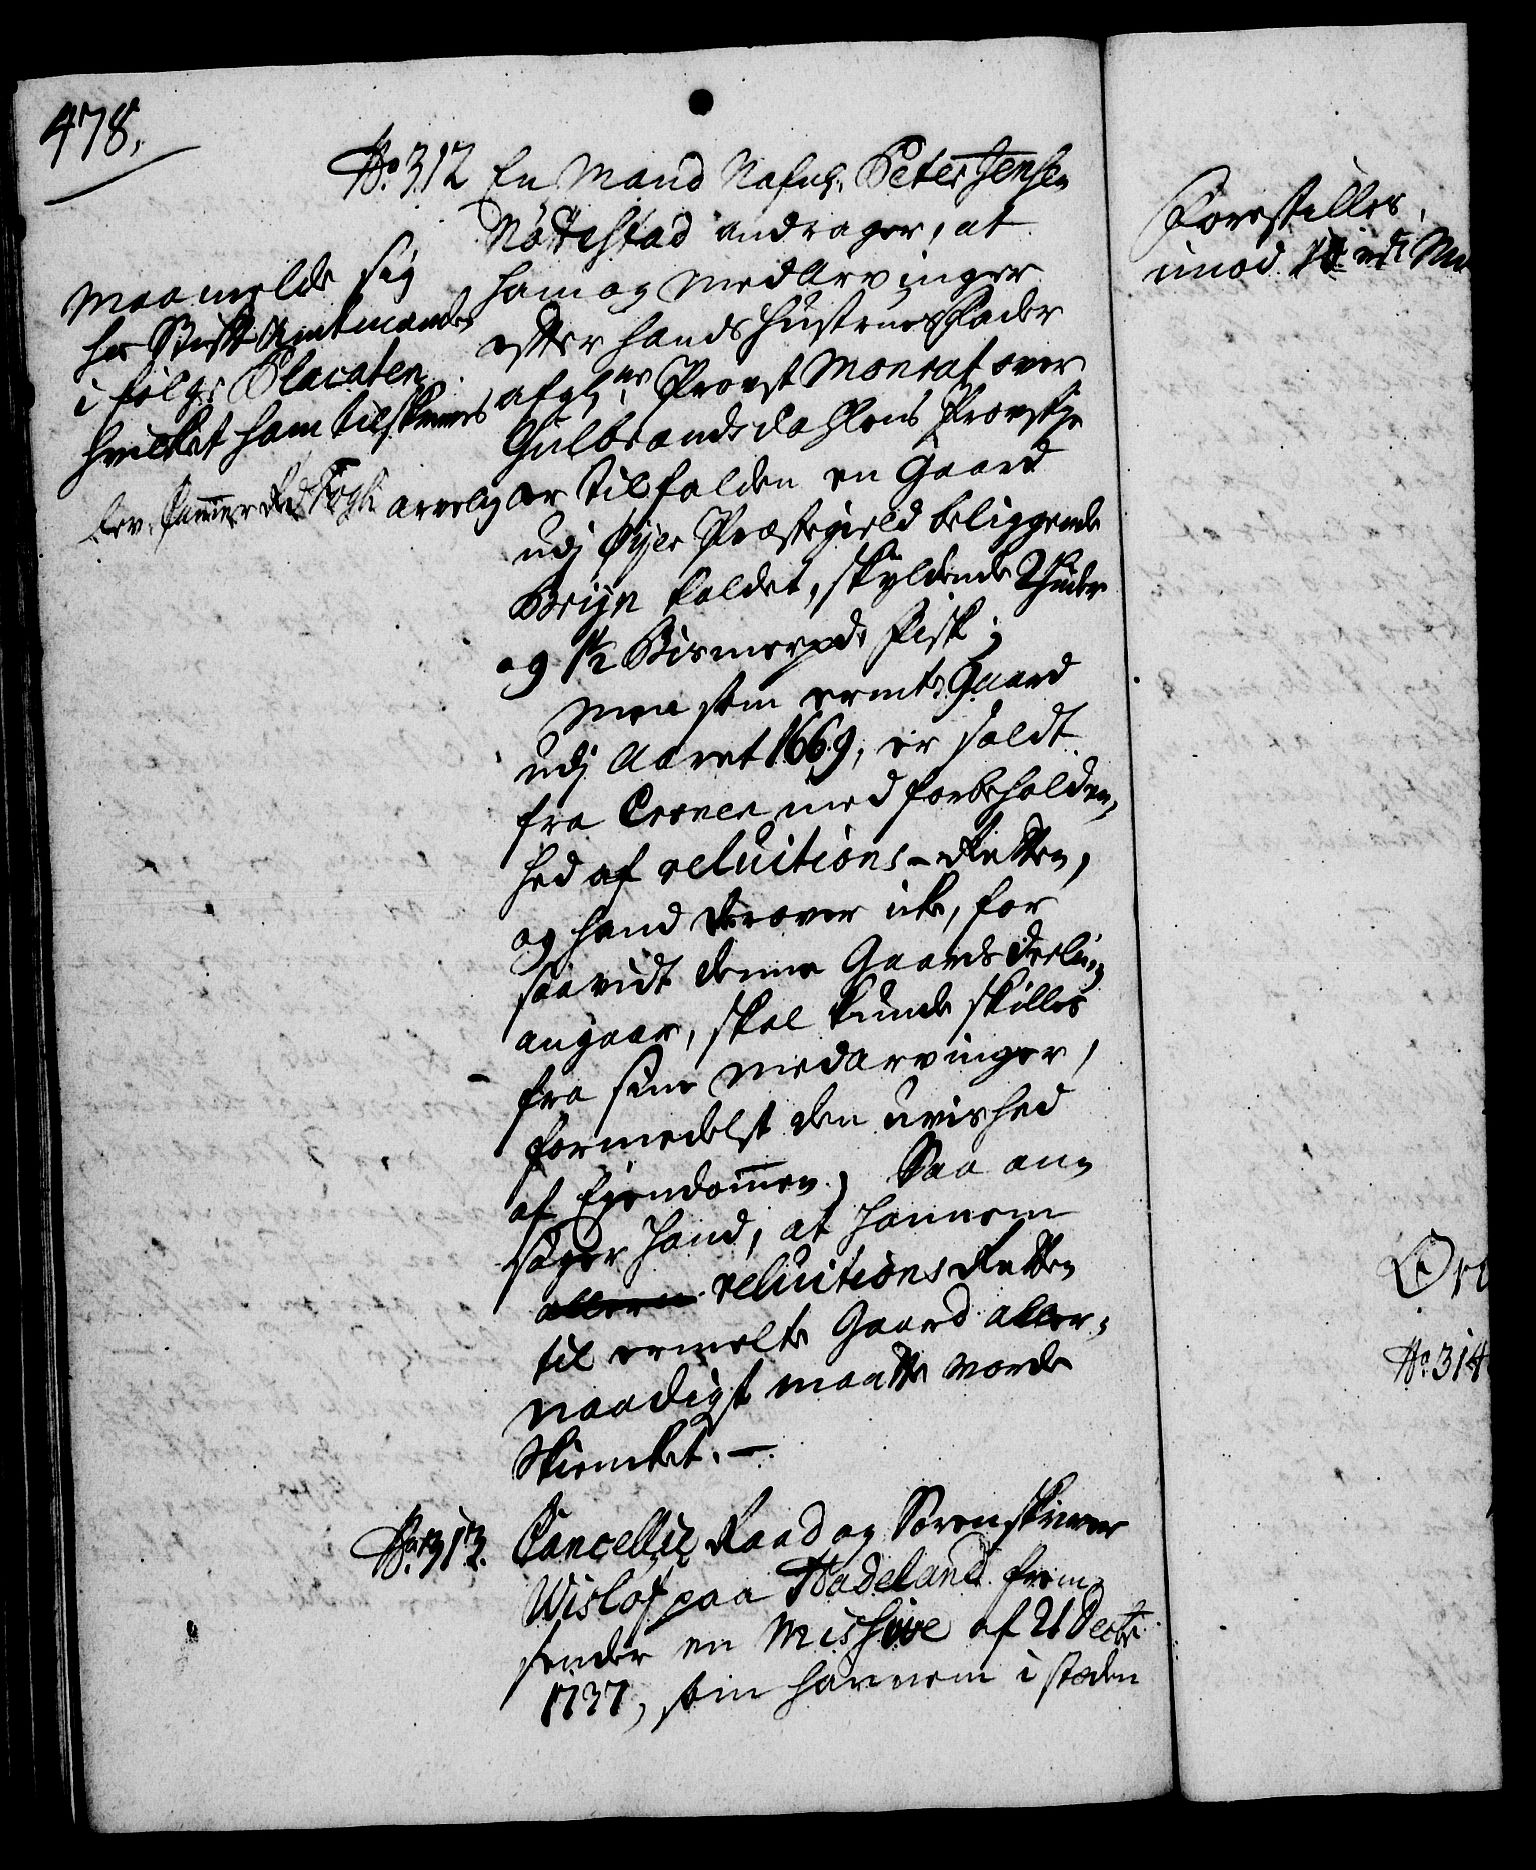 478.
No. 312 En Mand Nafnl. Peter Jensen
Nøttestad andrager, at
ham og Medarvinger
efter hands Hustrues Fader
afgl. Provst Monrat over
Gulbrandsdahlens Provstje
arvelig er tilfalden en Gaard
udj Øyer Præstegield beliggende
Bryn kaldet, skyldende 2 Huder
og 1½ Bismerpd. Fisk;
Men som ermte. Gaard
udj Aaret 1669, er soldt
fra Cronen med forbeholden-
hed af reluitions-Retten,
og hand derover icke, for
saavidt denne Gaards Deeling
angaar, skal kunde skilles
fra sine Medarvinger,
formedelst den uvished
af Eyendommen; Saa an-
søger hand, at hannem
reluitions Retten
til ermelte Gaard aller-
naadigst maatte vorde
Skienket. –
Maa melde sig
hos Stift Amtmanden
i følge Placaten
hvilket ham tilskrives
No. 313. Cancellie Raad og Sorenskriver
Wisløf paa Hadeland frem-
sender en Missive af 21 Decbr.
1737, som hannem i steden
Forestilles,
imod
No. 314